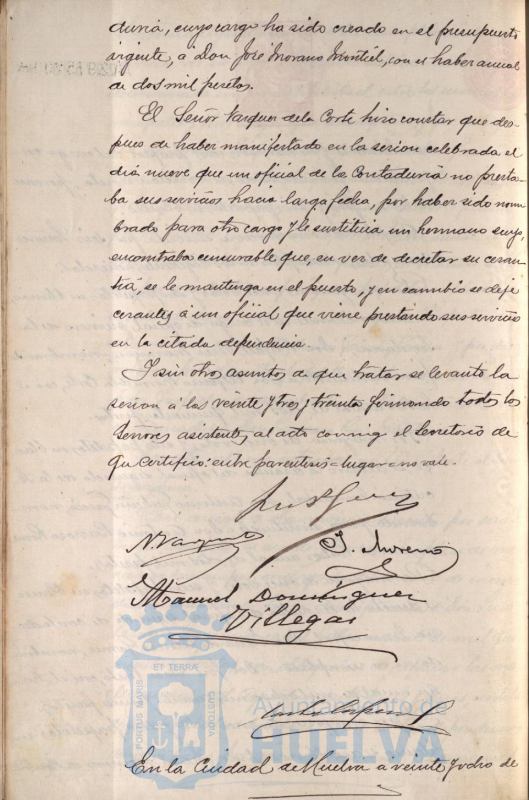 duria, cuyo cargo ha sido creado en el presupuesto
vigente, á Don José Morano Montiel, con el haber anual
de dos mil pesetas.
El Señor Vazquez de la Corte hizo constar que des-
pues de haber manifestado en la sesion celebrada el
dia nueve que un oficial de la Contaduria no presta-
ba sus servicios hacia larga fecha, por haber sido nom-
brado para otro cargo y le sustituia un hermano suyo,
encontraba censurable que, en vez de decretar su cesan-
tia, se le mantenga en el puesto, y en cambio se deje
cesante á un oficial que viene prestando sus servicios
en la citada dependencia.
Y sin otros asuntos de que tratar se levantó la
sesion á las veinte y tres y treinta firmando todos los
Señores asistentes al acto conmigo el Secretario de
que certifico: entre parentesis = lugar = no vale.
N. Vazquez
J. Moreno
Manuel Dominguez
Villegas
ET TERRÆ
PORTUS MARIS
CUSTODIA
Ayuntamiento de
HUELVA
En la Ciudad de Huelva á veinte y ocho de